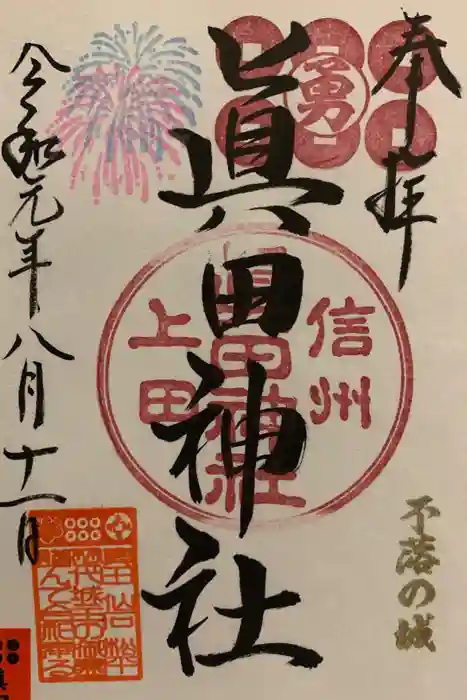 奉拝
勇
眞田神社
信州
眞田神社
上田
不落の城
令和元年八月十一日
眞